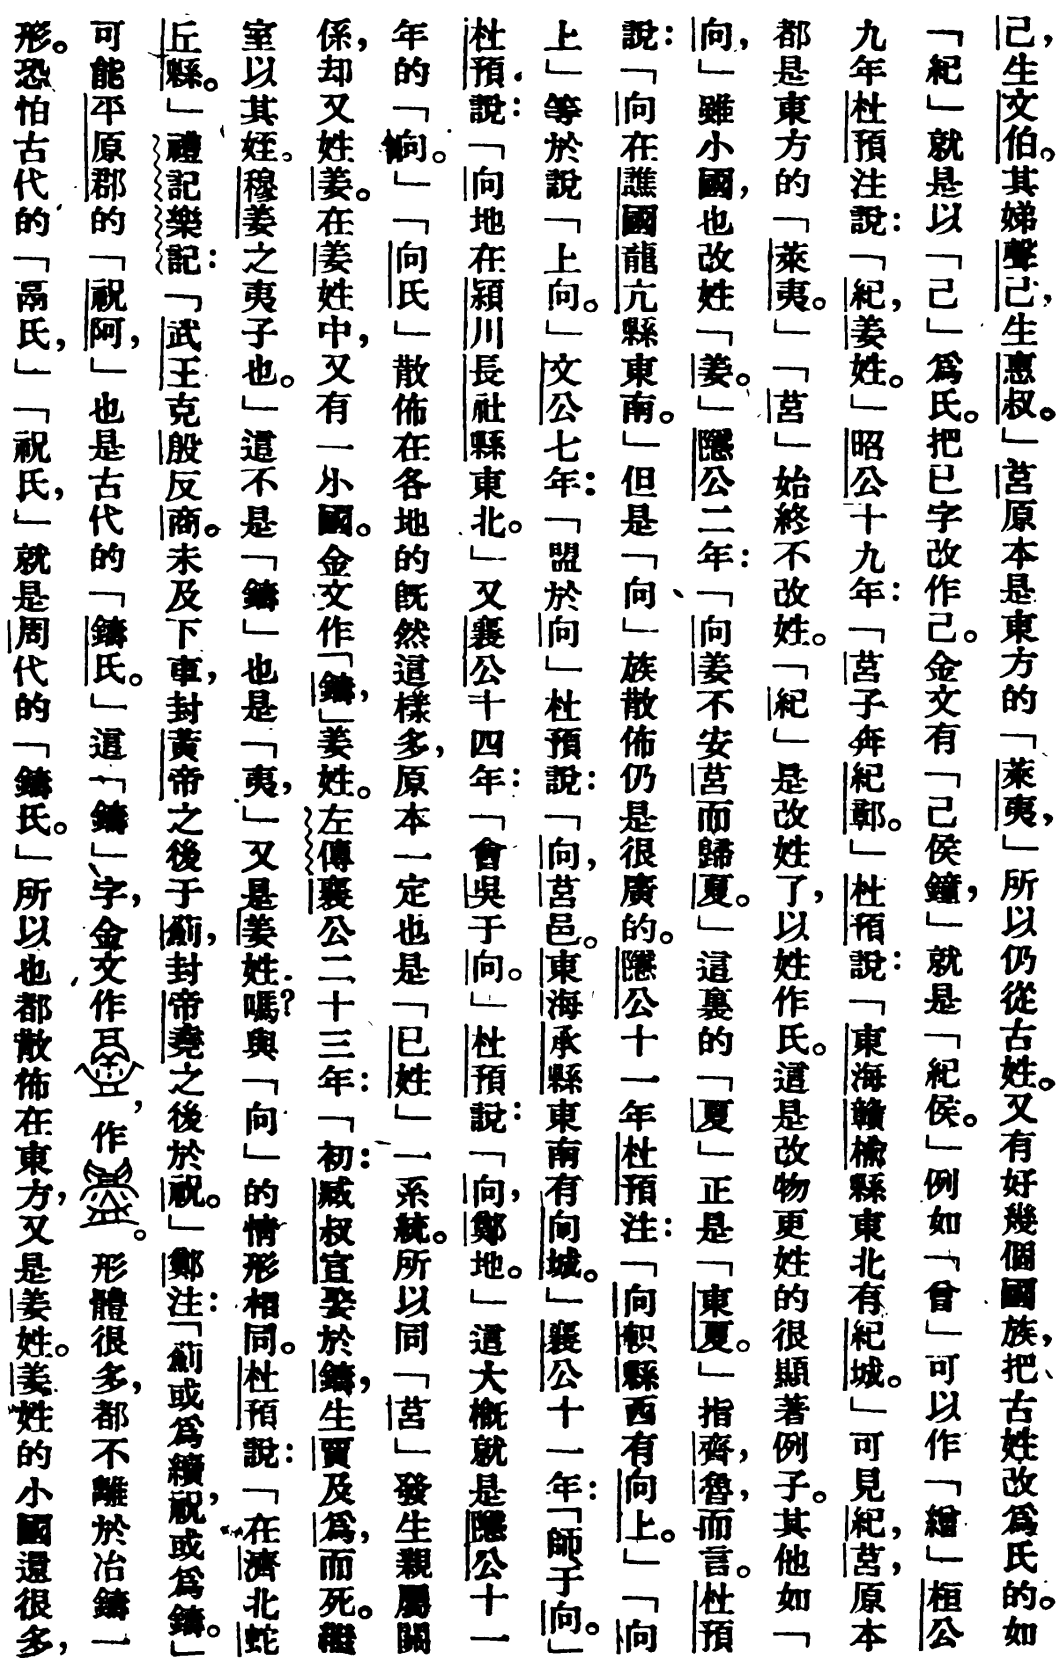 己，生文伯。其娣聲己，生惠叔。」莒原本是東方的「萊夷，」所以仍從古姓。又有好幾個國族，把古姓改爲氏的。如
「紀」就是以「己」爲氏。把已字改作己。金文有「己侯鐘，」就是「紀侯。」例如「曾」可以作「繒」桓公
九年杜預注說：「紀，姜姓。」昭公十九年：「莒子奔紀鄣。」杜預說：「東海贛榆縣東北有紀城。」可見紀，莒，原本
都是東方的「萊夷。」「莒」始終不改姓。「紀」是改姓了，以姓作氏。這是改物更姓的很顯著例子。其他如「
向，」雖小國，也改姓「姜。」隱公二年：「向姜不安莒而歸夏。」這裏的「夏」正是「東夏。」指齊，魯，而言。杜預
說：「向在譙國龍亢縣東南。」但是「向」族散佈仍是很廣的。隱公十一年杜預注：「向軹縣西有向上。」「向
上」等於說「上向。」文公七年：「盟於向」杜預說：「向，莒邑。東海承縣東南有向城。」襄公十一年：「師于向。」
杜預說：「向地在潁川長社縣東北。」又襄公十四年：「會吳于向。」杜預說：「向，鄭地。」這大概就是隱公十一
年的「向。」「向氏」散佈在各地的旣然這樣多，原本一定也是「已姓」一系統。所以同「莒」發生親屬關
係，却又姓姜。在姜姓中，又有一小國。金文作「鑄，」姜姓。左傳襄公二十三年：「初：臧叔宣娶於鑄，生賈及爲，而死。繼
室以其姪。穆姜之夷子也。」這不是「鑄」也是「夷，」又是姜姓嗎？與「向」的情形相同。杜預說：「在濟北蛇
丘縣。」禮記樂記：「武王克殷反商。未及下車，封黃帝之後于薊，封帝堯之後於祝。」鄭注：「薊或爲續，祝或爲鑄。」
可能平原郡的「祝阿，」也是古代的「鑄氏。」這「鑄」字，金文作，作。形體很多，都不離於冶鑄一
形。恐怕古代的「鬲氏，」「祝氏，」就是周代的「鑄氏。」所以也都散佈在東方，又是姜姓。姜姓的小國還很多，